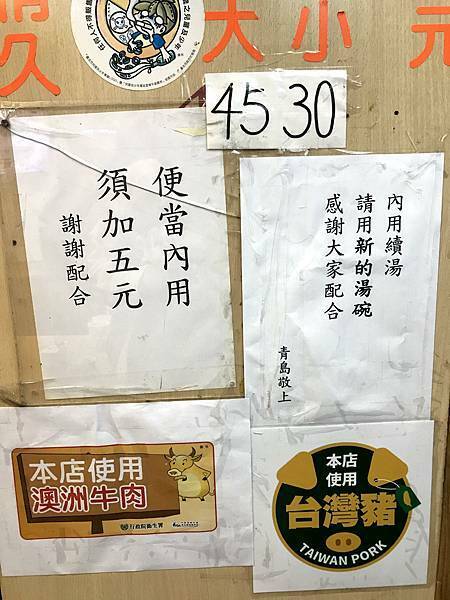 大小 元
久
45 30
便當內用
須加五元
謝謝配合
內用續湯
請用新的湯碗
感謝大家配合
青島敬上
本店使用
澳洲牛肉
行政院衛生署
本店
使用
台灣豬
TAIWAN PORK